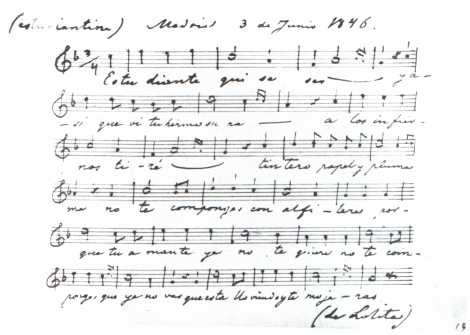 (estudiantina) Madrid 3 de Junio 1846.
3/4
Estudiante qui se ser ya-
-si que vi tu hermosu ra a los infier-
nos ti-ré tintero papel y pluma
no te compongas con alfi-leres, por-
que tu amante ya no te quiere no te com-
pongas, que ya no vas que esta lloviendo y te moja-ras
(de Lolita)